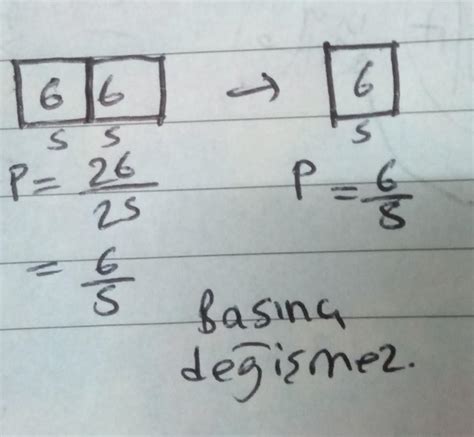 6 6 → 6
S S S
P = 2G/2S P = G/S
= G/S
Basınç
değişmez.